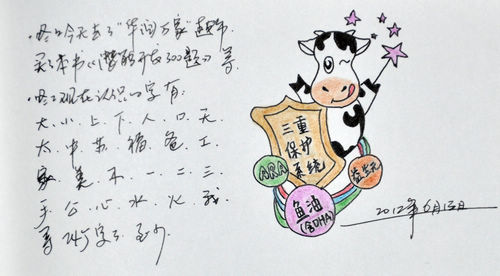 ·咚咚今天去了"华润万家"超市
买了本书《潜能开发300题》等
·咚咚现在认识的字有:
大.小.上.下.人.口.天
太.中.草.福.爸.工
家.美.不.一.二.三
手.公.心.水.火.我
等24个字了.至少
三重
保护
系统
ARA
益生元
鱼油
(含DHA)
2012年6月13日